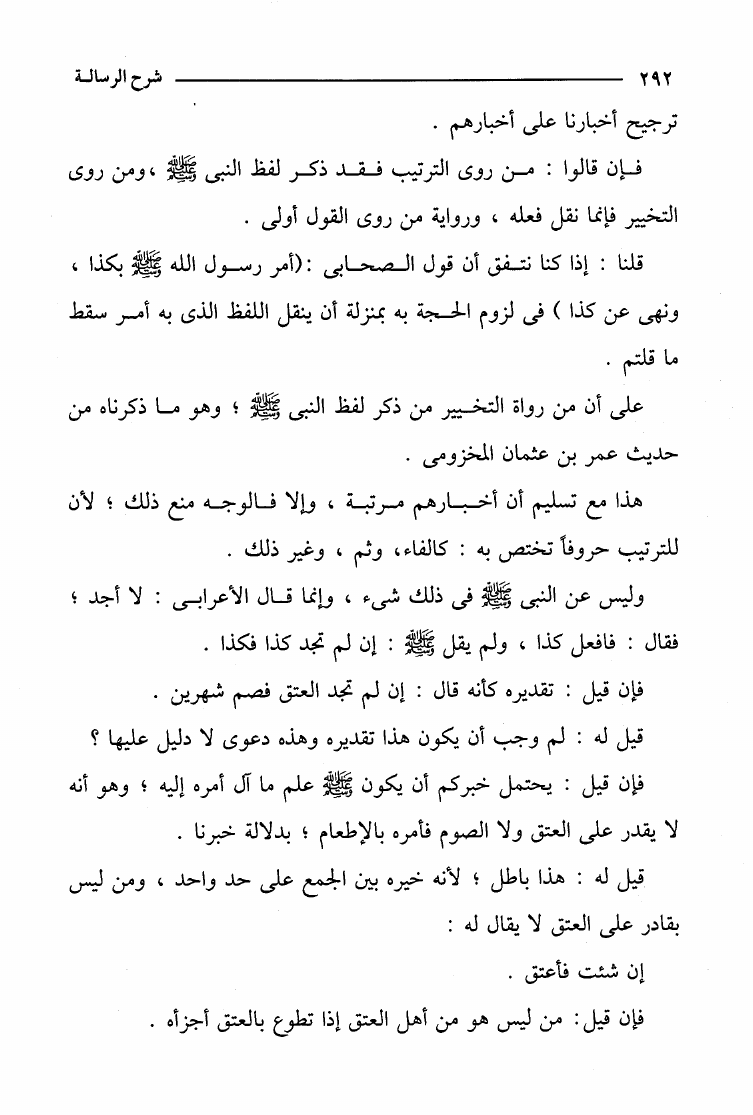 ٢٩٢ ــــــــــــــــــــ شرح الرسالـة
ترجيح أخبارنا على أخبارهم .
فـإن قالوا : مـن روى الترتيب فـقـد ذكـر لفظ النبى ﷺ ،ومن روى
التخيير فإنما نقل فعله ، ورواية من روى القول أولى .
قلنا : إذا كنا نتـفق أن قول الـصحـابى :(أمر رسـول الله ﷺ بكذا ،
ونهى عن كذا ) فى لزوم الحـجة به بمنزلة أن ينقل اللفظ الذى به أمـر سقط
ما قلتم .
على أن من رواة التخـيير من ذكر لفظ النبى ﷺ ؛ وهو مـا ذكرناه من
حديث عمر بن عثمان المخزومى .
هذا مع تسليم أن أخـبـارهم مـرتبـة ، وإلا فـالوجـه منع ذلك ؛ لأن
للترتيب حروفاً تختص به : كالفاء، وثم ، وغير ذلك .
وليس عن النبى ﷺ فى ذلك شىء ، وإنما قـال الأعرابـى : لا أجد ؛
فقال : فافعل كذا ، ولم يقل ﷺ : إن لم تجد كذا فكذا .
فإن قيل : تقديره كأنه قال : إن لم تجد العتق فصم شهرين .
قيل له : لم وجب أن يكون هذا تقديره وهذه دعوى لا دليل عليها ؟
فإن قيل : يحتمل خبركم أن يكون ﷺ علم ما آل أمره إليه ؛ وهو أنه
لا يقدر على العتق ولا الصوم فأمره بالإطعام ؛ بدلالة خبرنا .
قيل له : هذا باطل ؛ لأنه خيره بين الجمع على حد واحد ، ومن ليس
بقادر على العتق لا يقال له :
إن شئت فأعتق .
فإن قيل: من ليس هو من أهل العتق إذا تطوع بالعتق أجزأه .